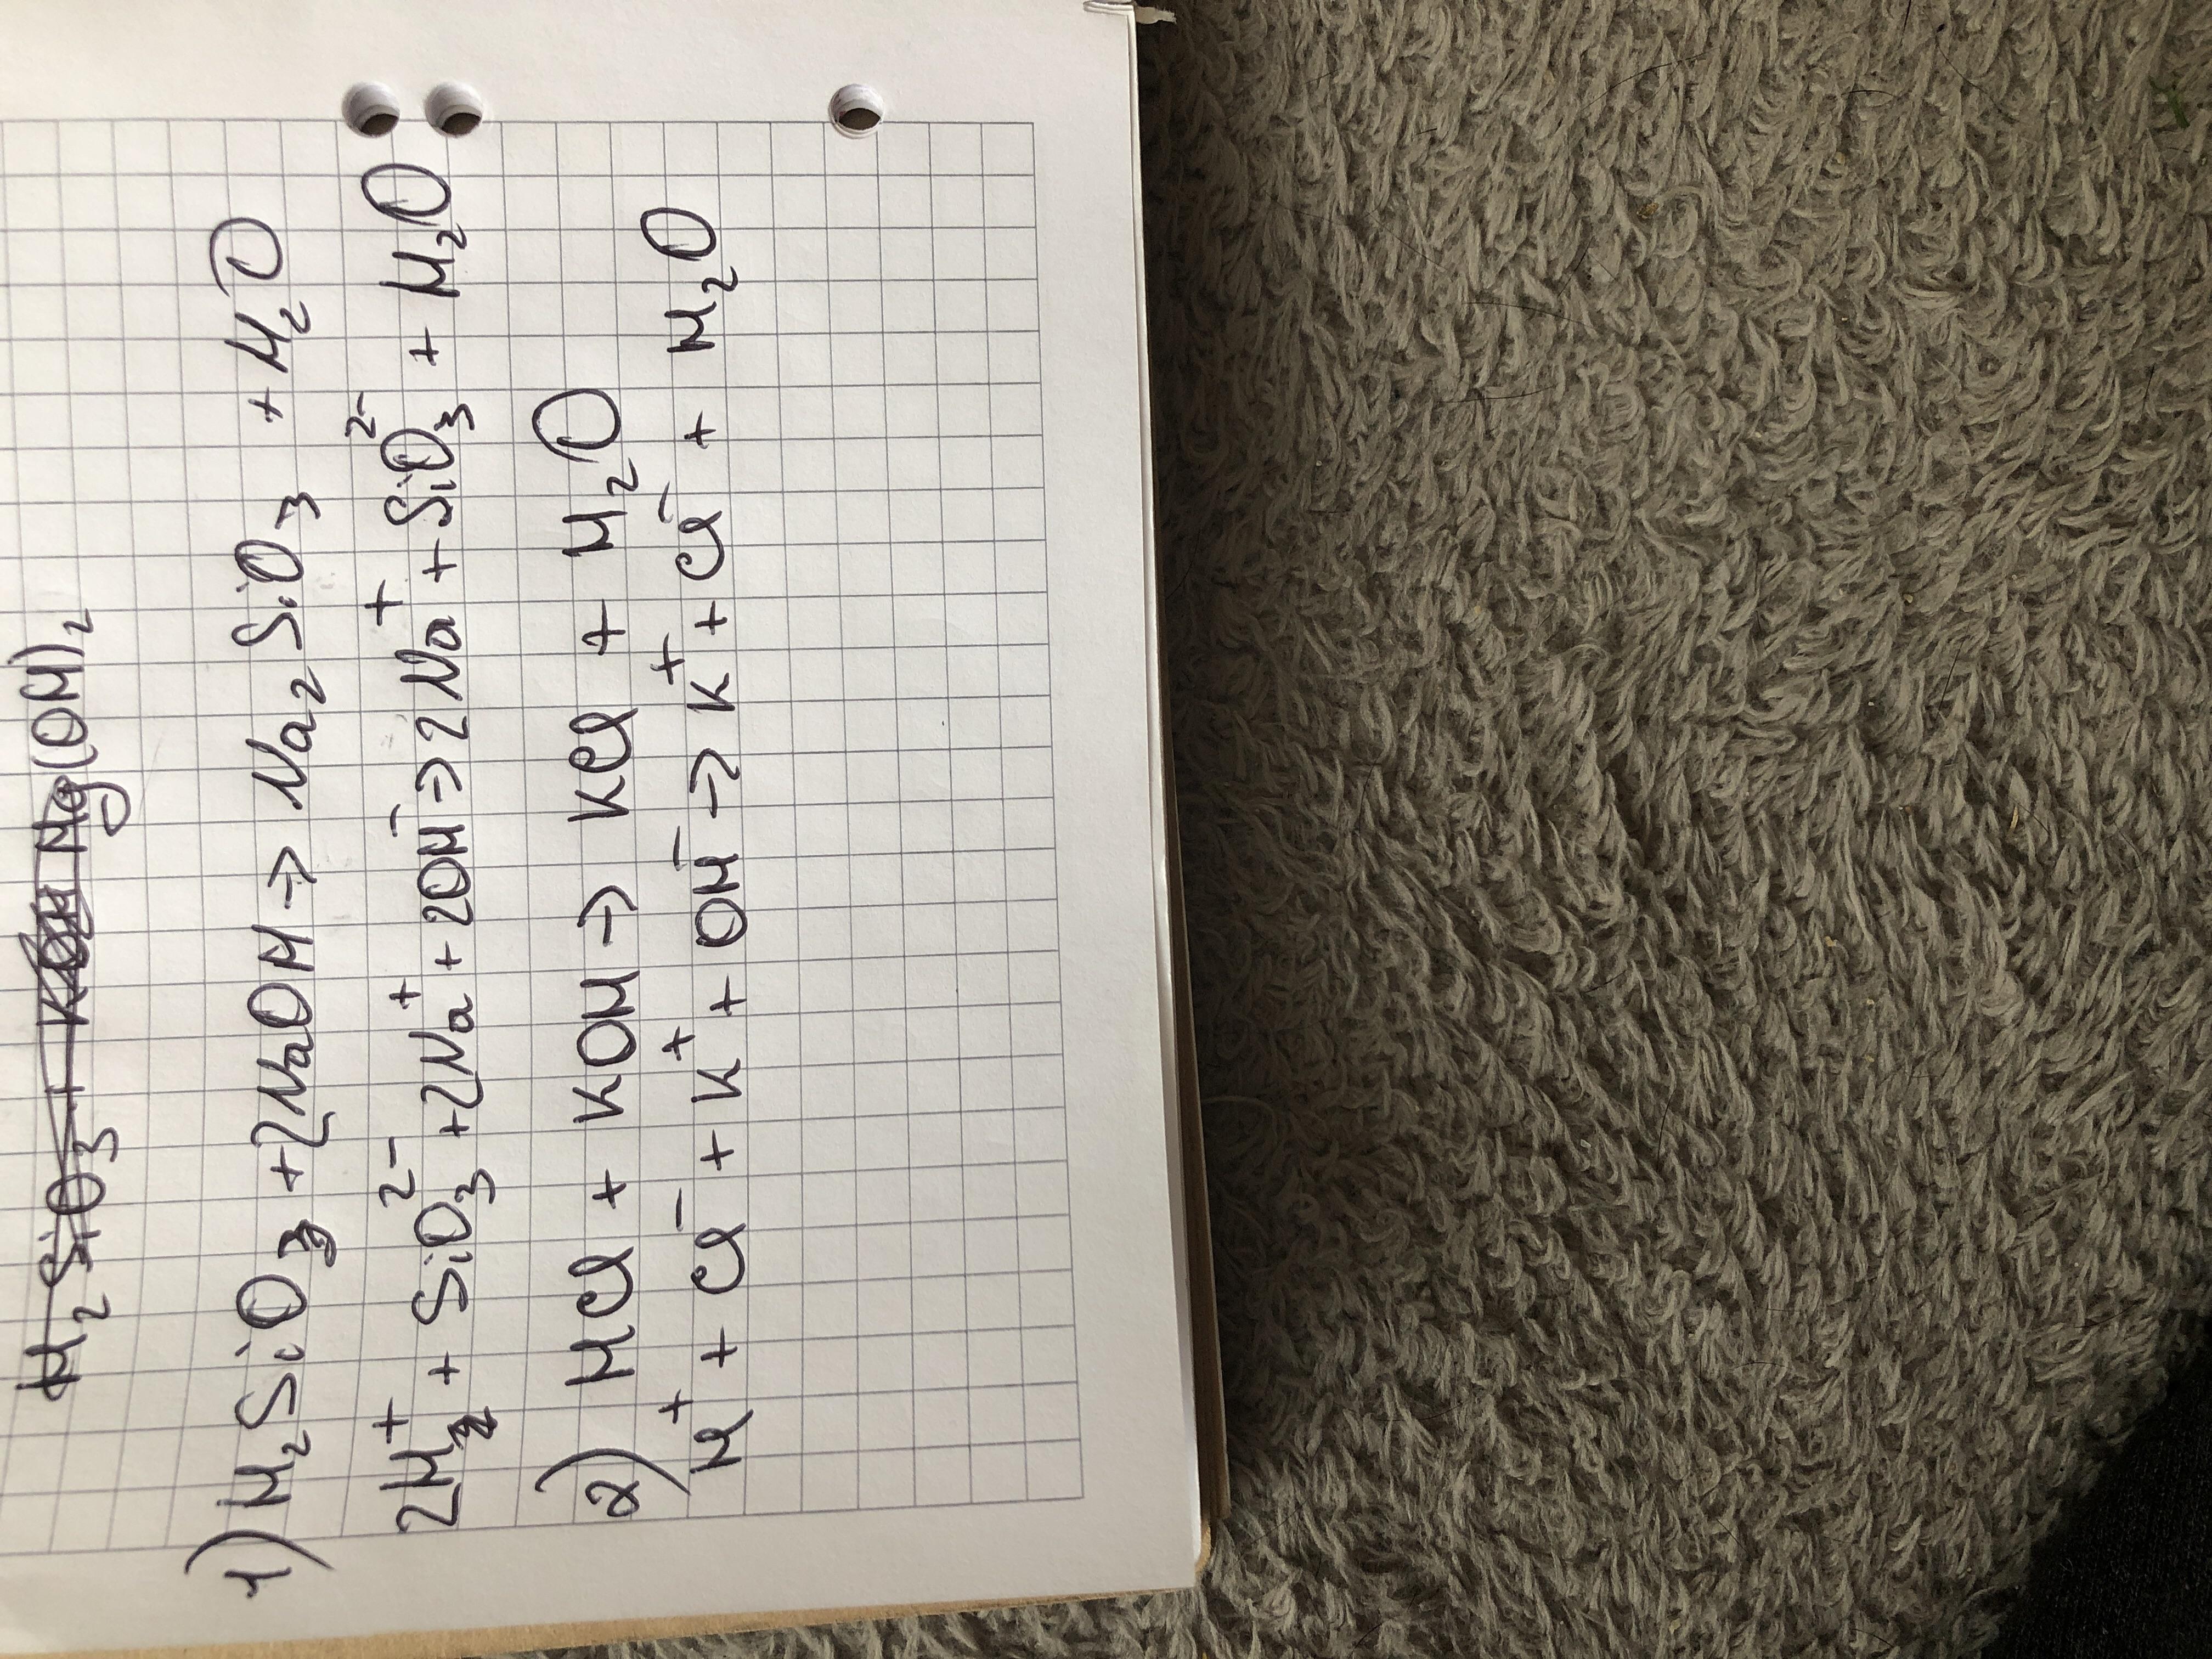 H₂SiO₃ + KOH Mg(OH)₂
1) H₂SiO₃ + 2NaOH → Na₂SiO₃ + H₂O
2H⁺ + SiO₃²⁻ + 2Na⁺ + 2OH⁻ → 2Na⁺ + SiO₃²⁻ + H₂O
2) HCl + KOH → KCl + H₂O
H⁺ + Cl⁻ + K⁺ + OH⁻ → K⁺ + Cl⁻ + H₂O